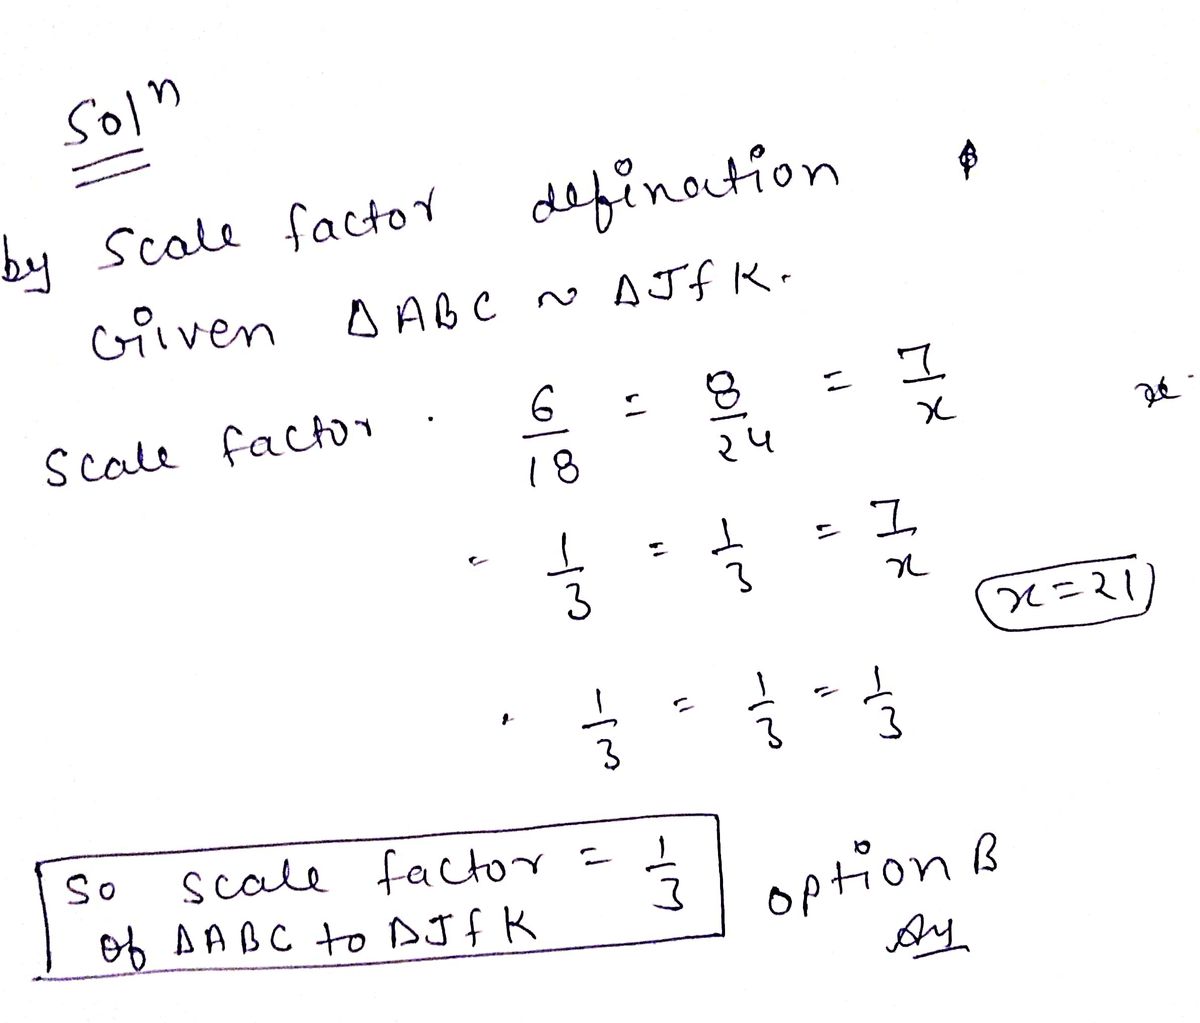 Solⁿ
by Scale factor defination
Given Δ ABC ~ ΔJfK.
Scale factor . 6/18 = 8/24 = 7/x
= 1/3 = 1/3 = 7/x
x=21
1/3 = 1/3 = 1/3
So scale factor = 1/3
of ΔABC to ΔJfK
option B
Ay